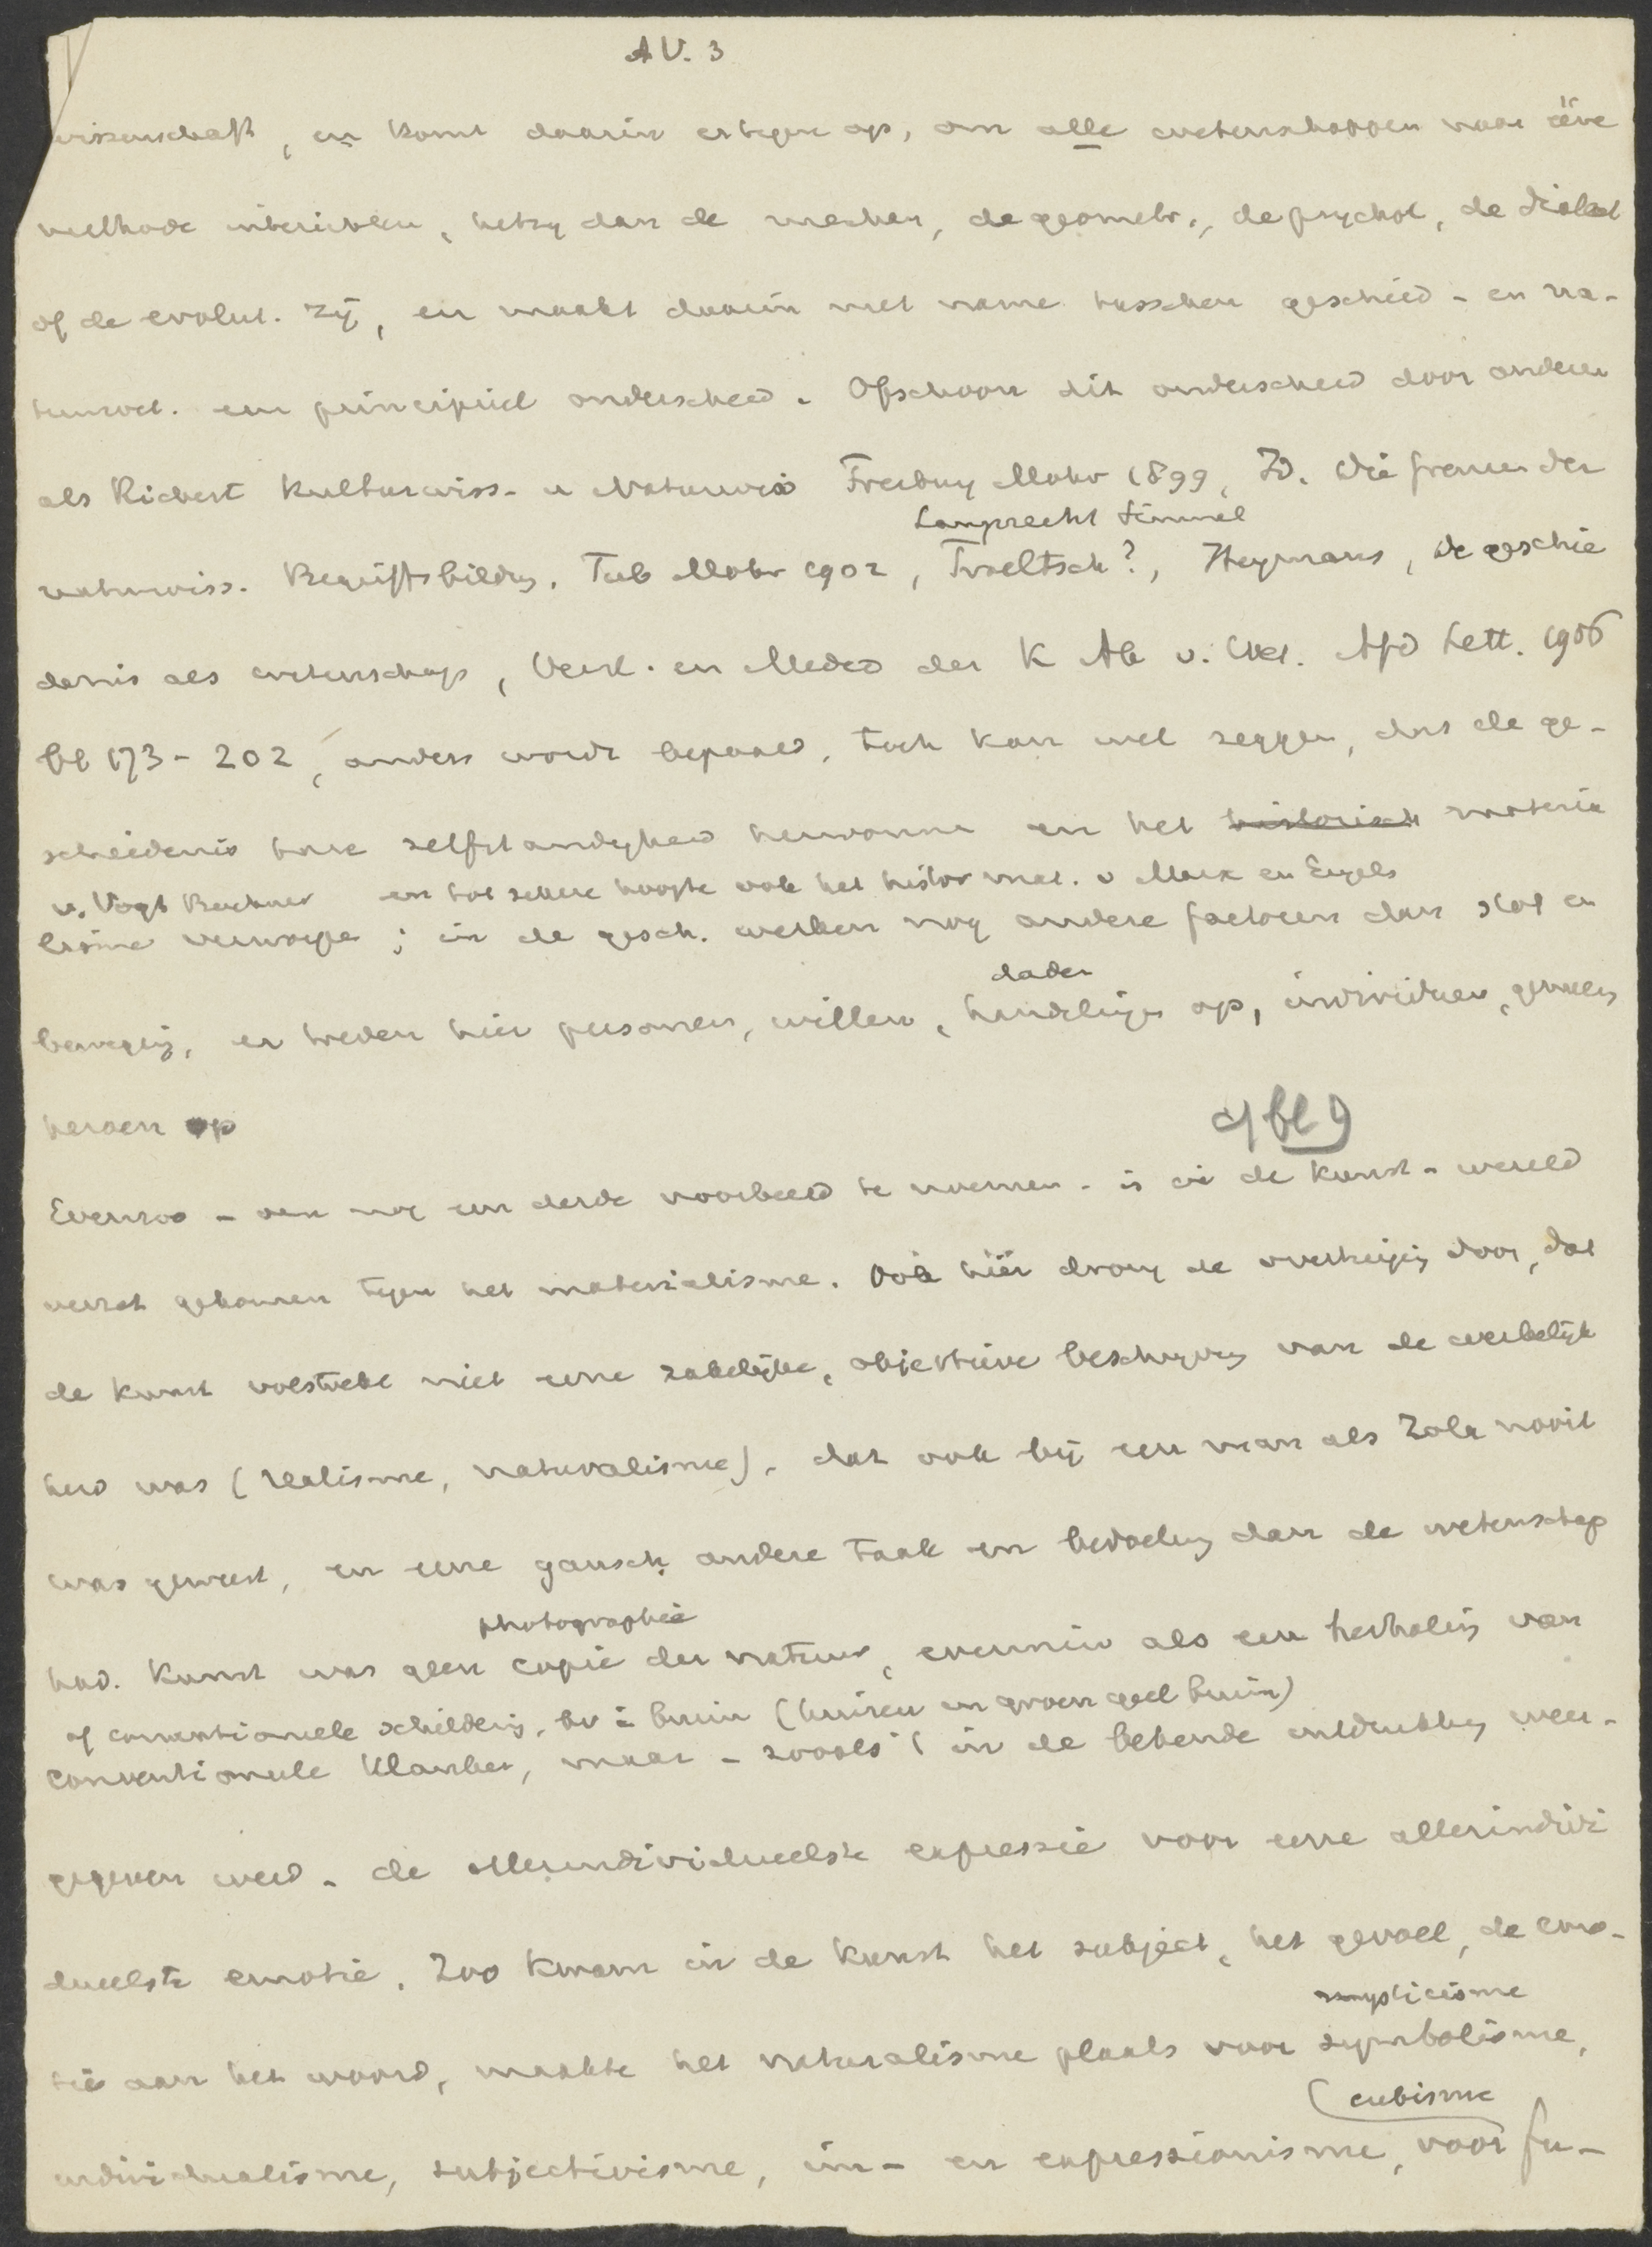 A V. 3
wissenschaft, en komt daarin ertegen op, om alle wetenschappen naar ééne
methode interichten, hetzy dan de mechan, de geometr., de psychol, de dialect
of de evolut. zij, en maakt daarin met name tusschen geschied- en na-
tuurwet. een principieel onderscheid. Ofschoon dit onderscheid door anderen
als Rickert Kulturwiss. u Naturwiss Freiburg Mohr 1899, Id. Die Grenzen der
Lamprecht Simmel
naturwiss. Begriffsbildung. Tub Mohr 1902, Troeltsch?, Heymans, De geschie
denis als wetenschap, Versl. en Meded der K Ak v. Wet. Afd Lett. 1906
bl 173-202, anders wordt bepaald, toch kan men zeggen, dat de ge-
schiedenis hare zelfstandigheid herwonnen en het historisch materia
v. Vogt Buchner en tot zekere hoogte ook het histor mat. v Marx en Engels
lisme verworpen; in de gesch. werken nog andere factoren dan stof en
daden
beweging, er treden hier personen, willen, handelingen op, individuen, genieën
heroen op
cf bl 9
Evenzoo - om nog een derde voorbeeld te noemen - is in de kunst-wereld
verzet gekomen tegen het materialisme. Ook hier drong de overtuiging door, dat
de kunst volstrekt niet eene zakelijke, objectieve beschrijving van de werkelijk
heid was (realisme, naturalisme), dat ook bij een man als Zola nooit
was geweest, en eene gansch andere taak en bedoeling dan de wetenschap
photographie
had. Kunst was geen copie der natuur, evenmin als een herhaling van
of conventioneele schildering, bv in bruin (huizen en groen geel bruin)
conventioneele klanken, maar - zooals in de bekende uitdrukking weer-
gegeven werd - de allerindividueelste expressie voor eene allerindivi
dueelste emotie. Zoo kwam in de kunst het subject, het gevoel, de emo-
mysticisme
tie aan het woord, maakte het naturalisme plaats voor symbolisme,
cubisme
individualisme, subjectivisme, im- en expressionisme, voor fu-